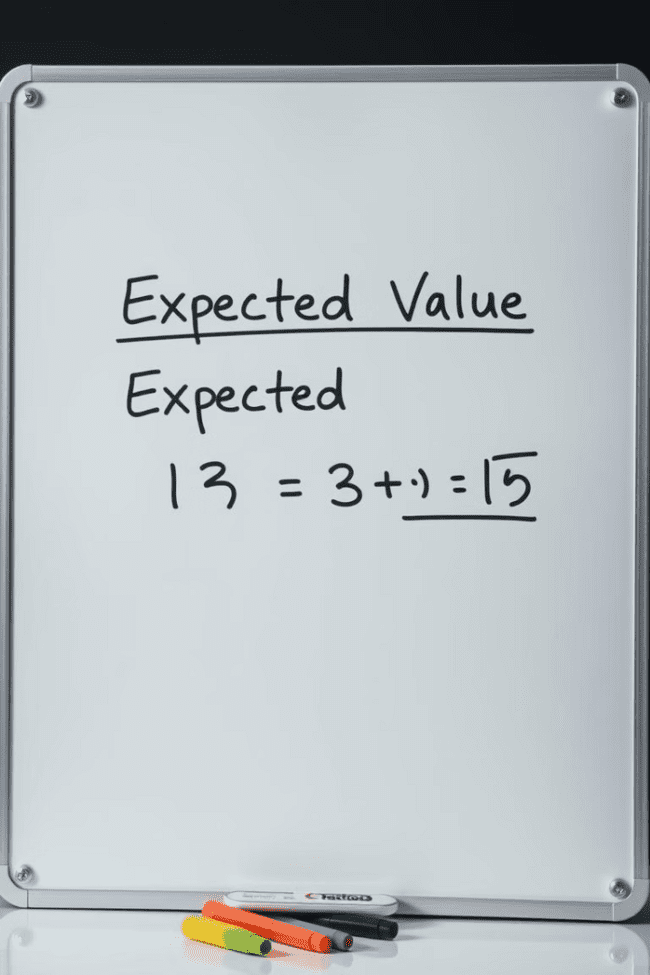 Expected Value
Expected
13 = 3 + = 15